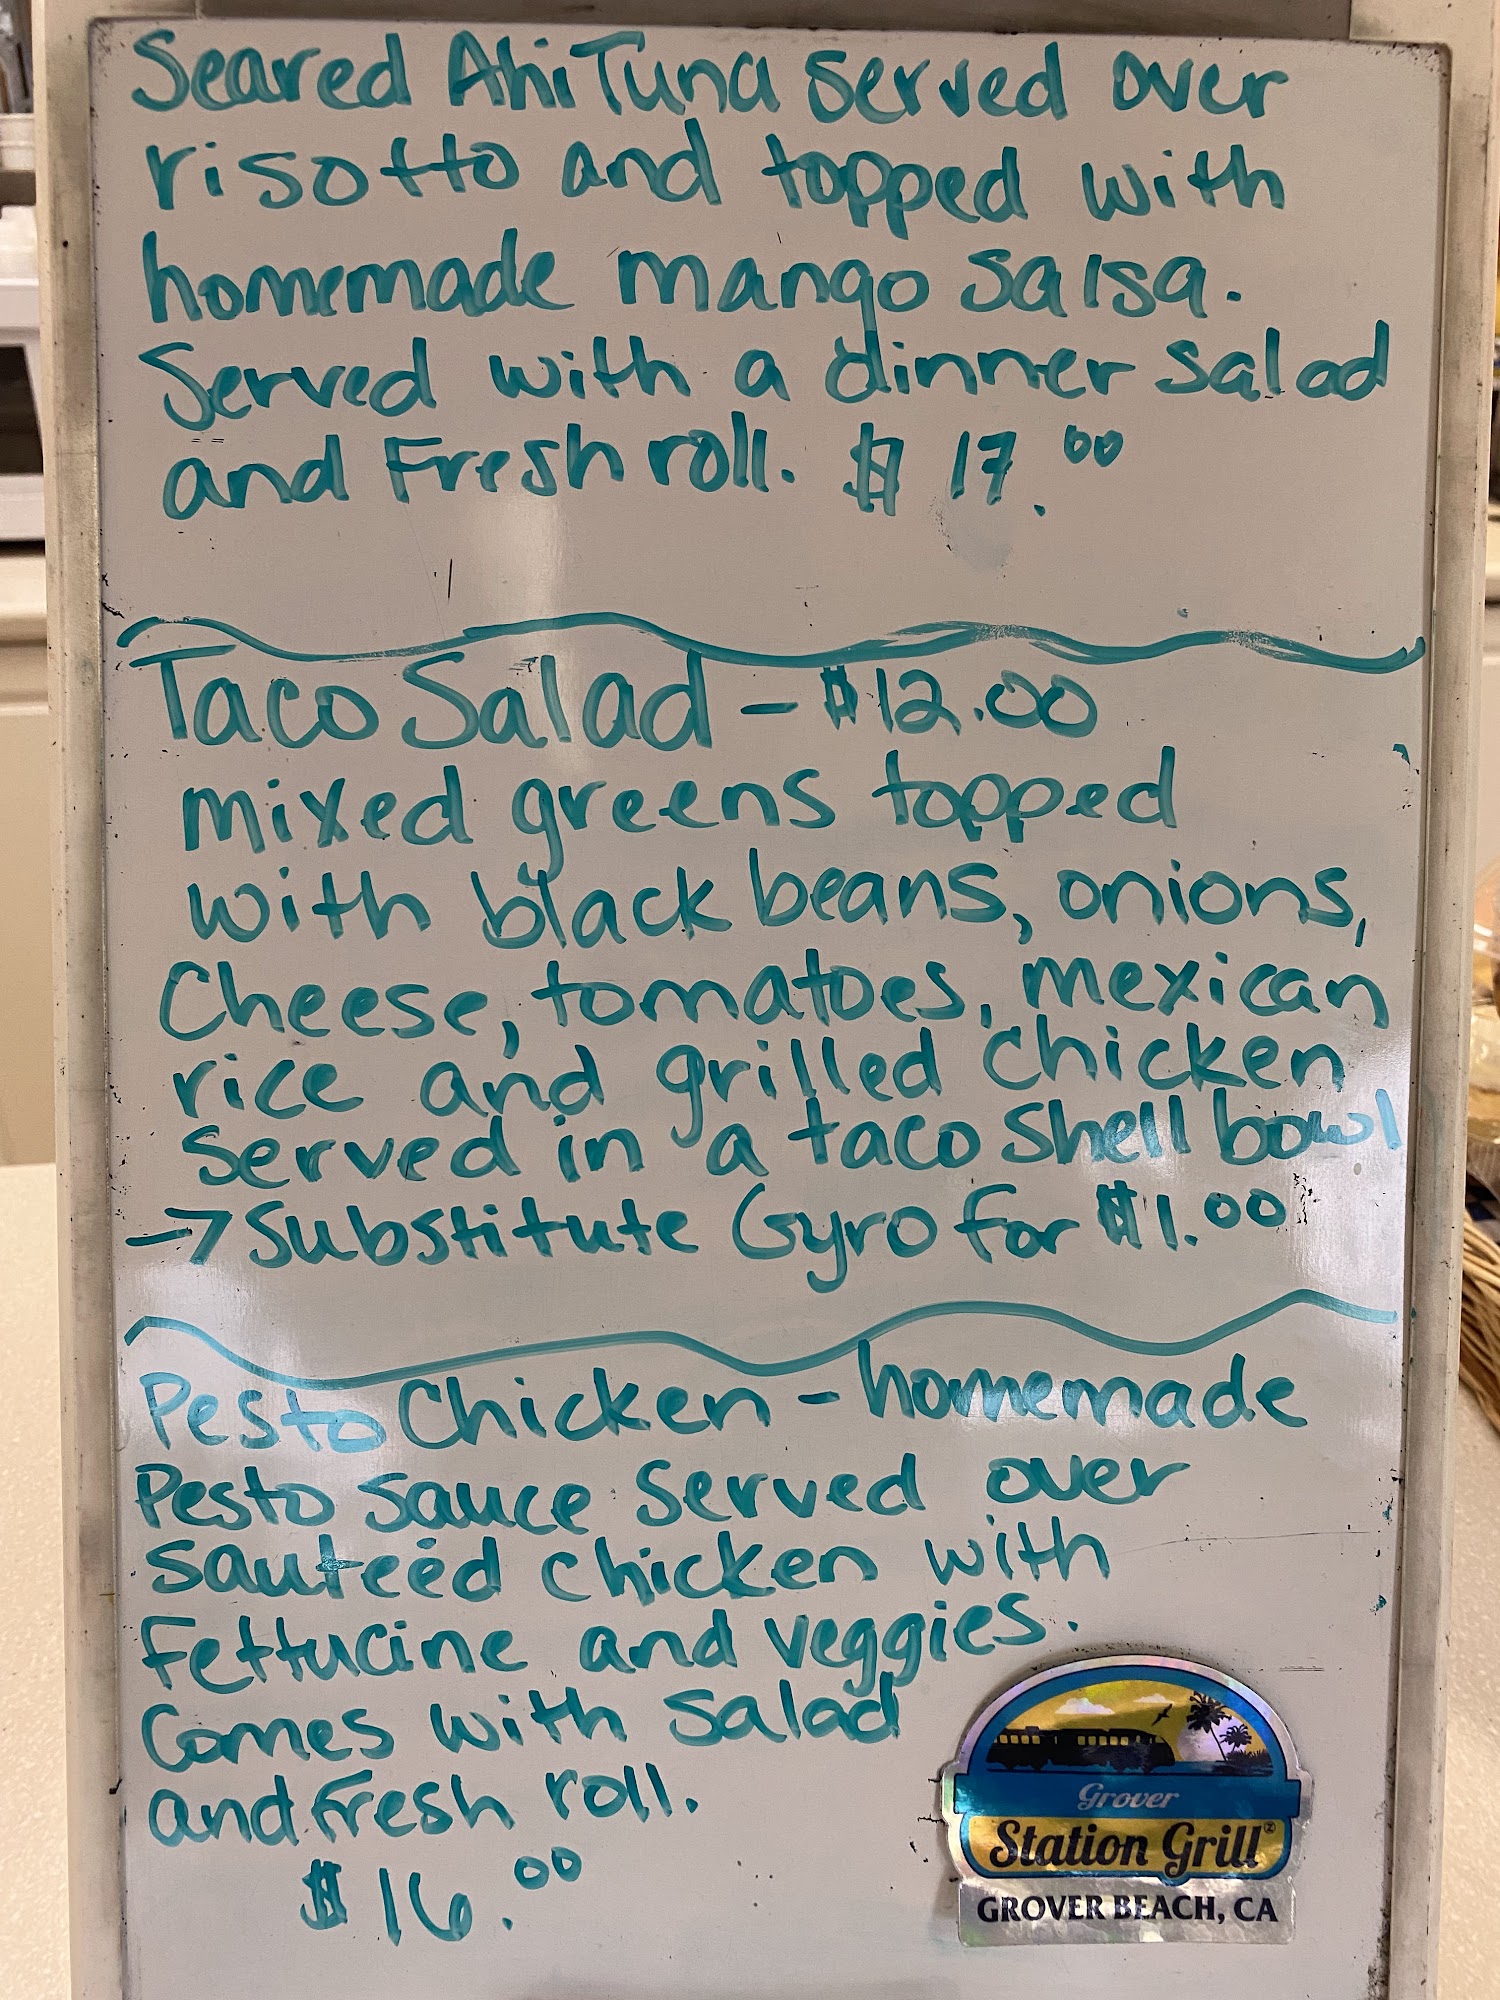 Seared Ahi Tuna served over
risotto and topped with
homemade mango salsa.
Served with a dinner salad
and Fresh roll. $17.00
Taco Salad - $12.00
mixed greens topped
with black beans, onions,
Cheese, tomatoes, mexican
rice and grilled chicken
served in a taco shell bowl
→ Substitute Gyro for $1.00
Pesto Chicken - homemade
Pesto sauce served over
sauteéd chicken with
Fettucine and veggies.
Comes with salad
and Fresh roll.
$16.00
Grover
Station Grill
GROVER BEACH, CA